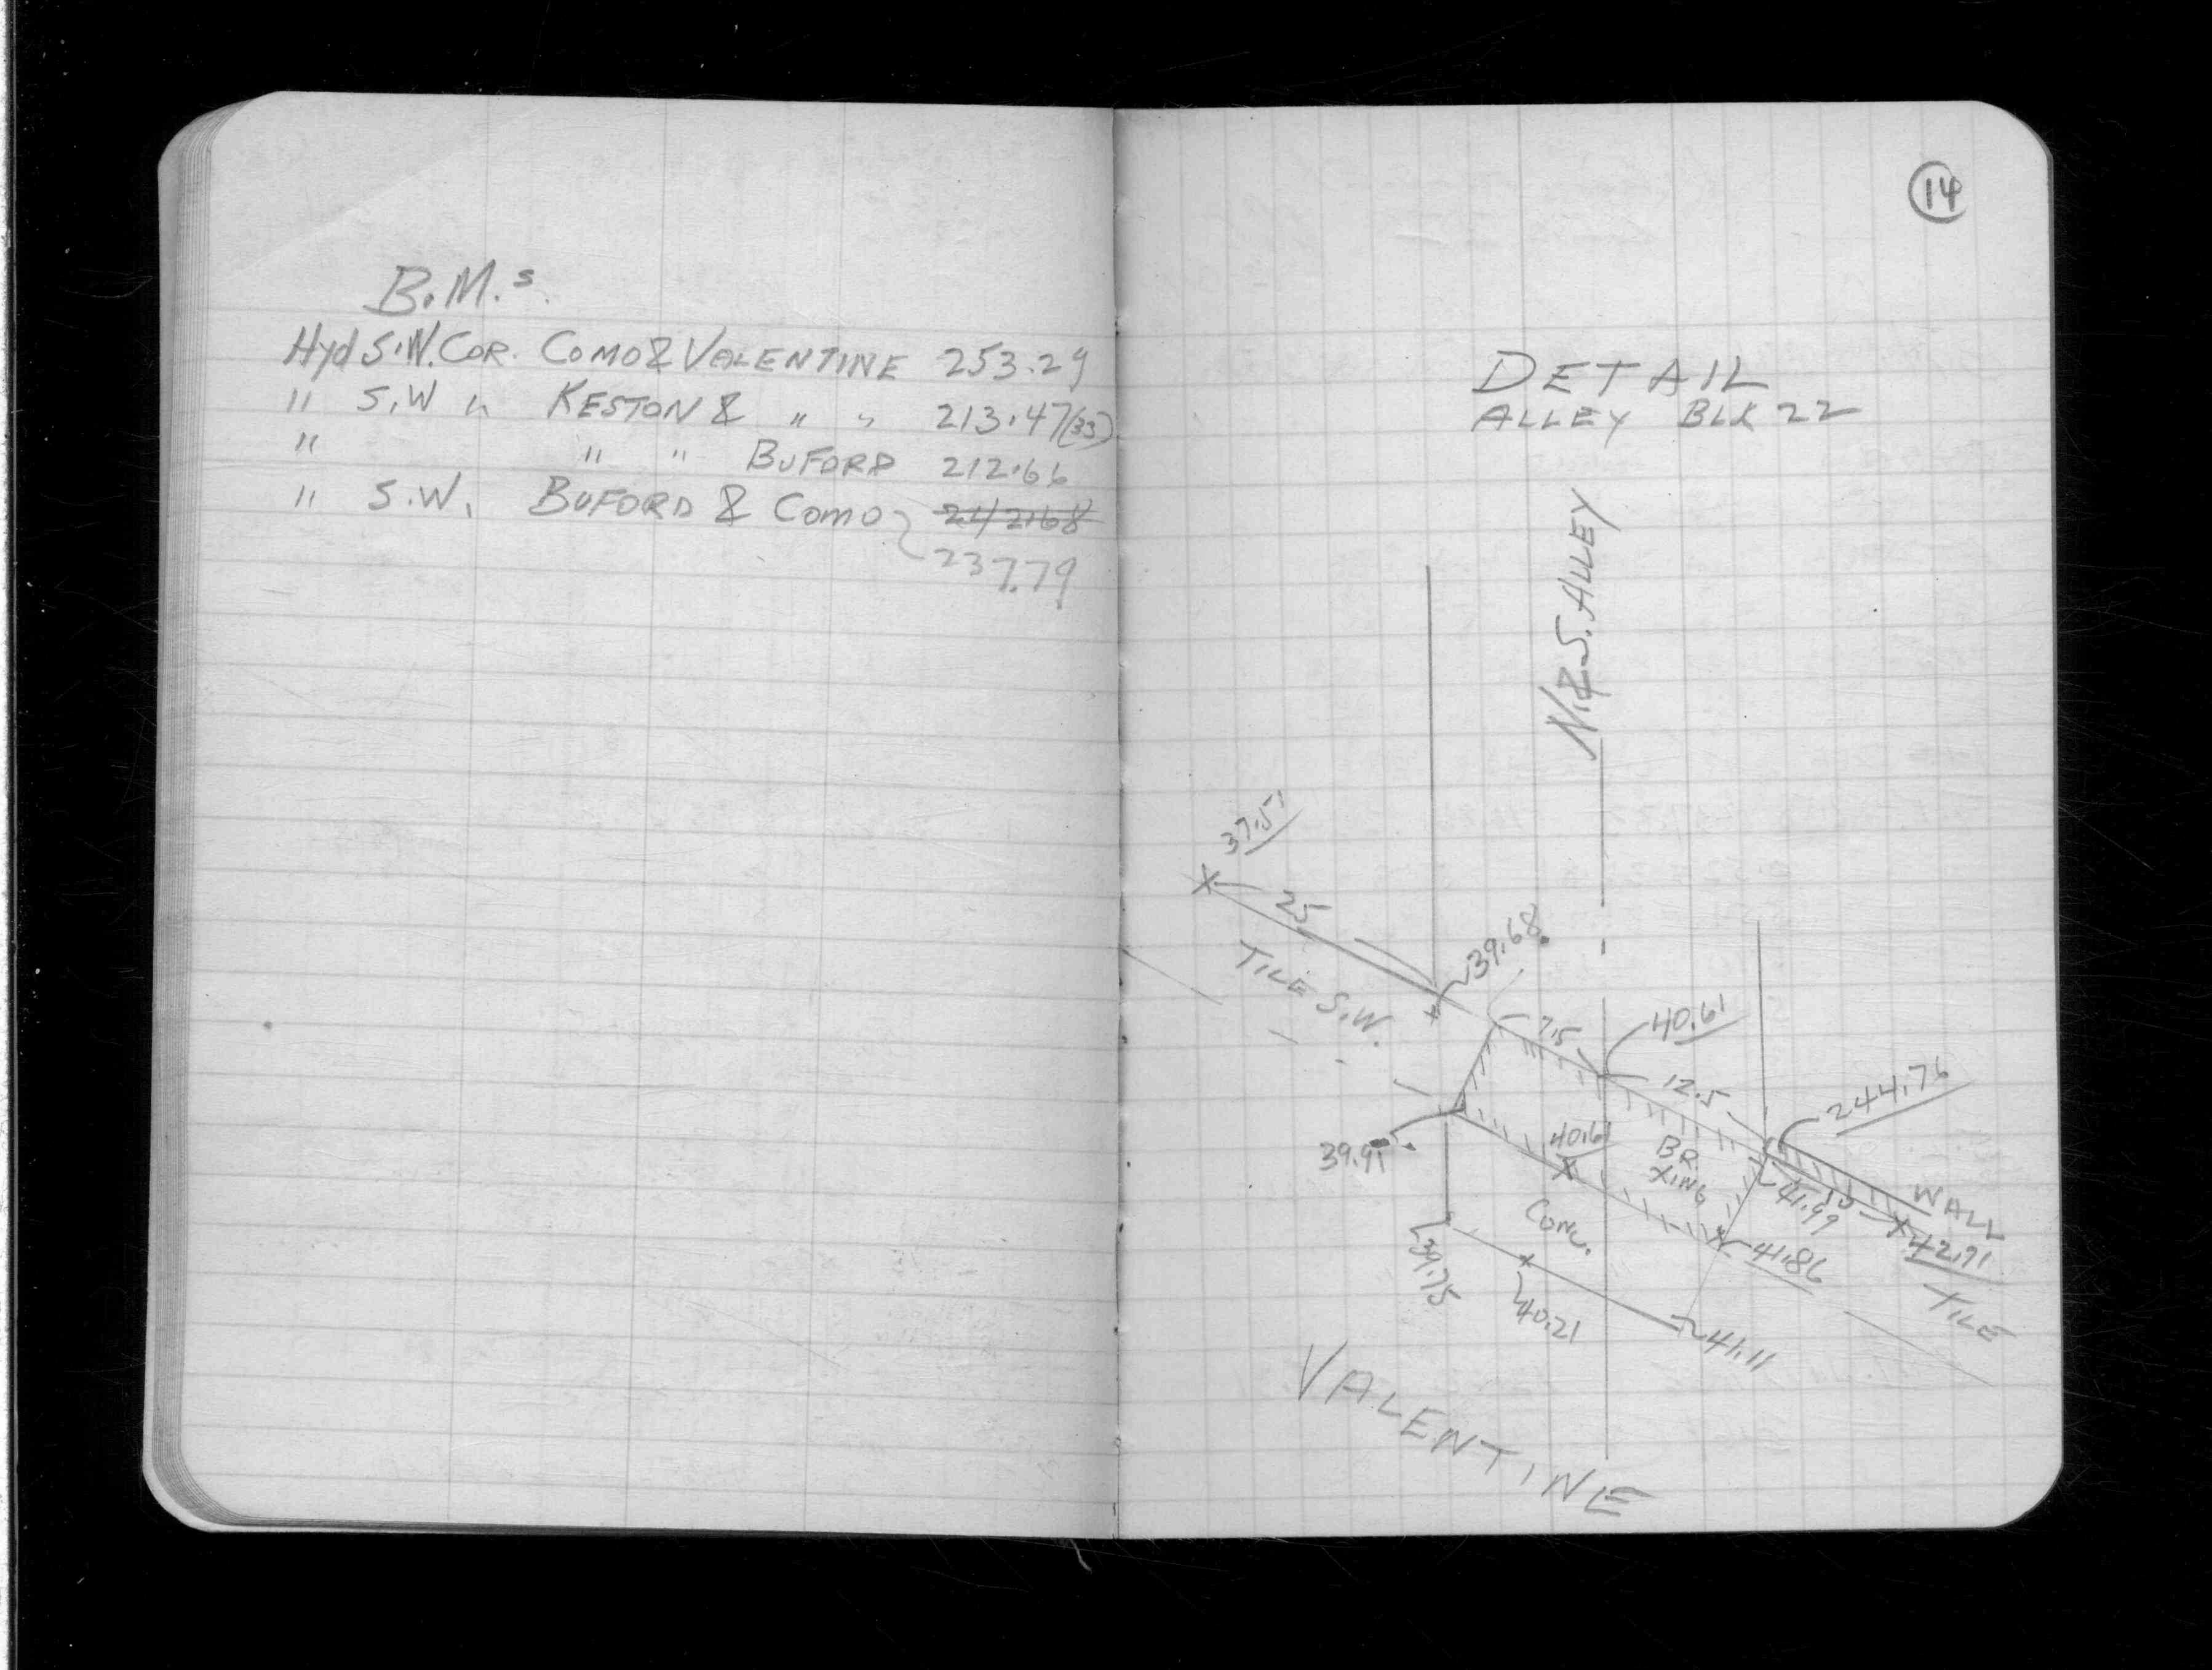 B.M.s
Hyd S.W. COR. COMO & VALENTINE 253.29
" S.W " KESTON & " " 213.47(33)
" " " BUFORD 212.66
" S.W. BUFORD & COMO 242.68
237.79
14
DETAIL
ALLEY BLK 22
N.&S. ALLEY
37.51
25
TILE S.W.
39.68
7.5
40.61
12.5
244.76
39.91
40.61
BR.
XING
41.49
10
WALL
42.91
TILE
CONC.
41.86
39.75
40.21
41.11
VALENTINE